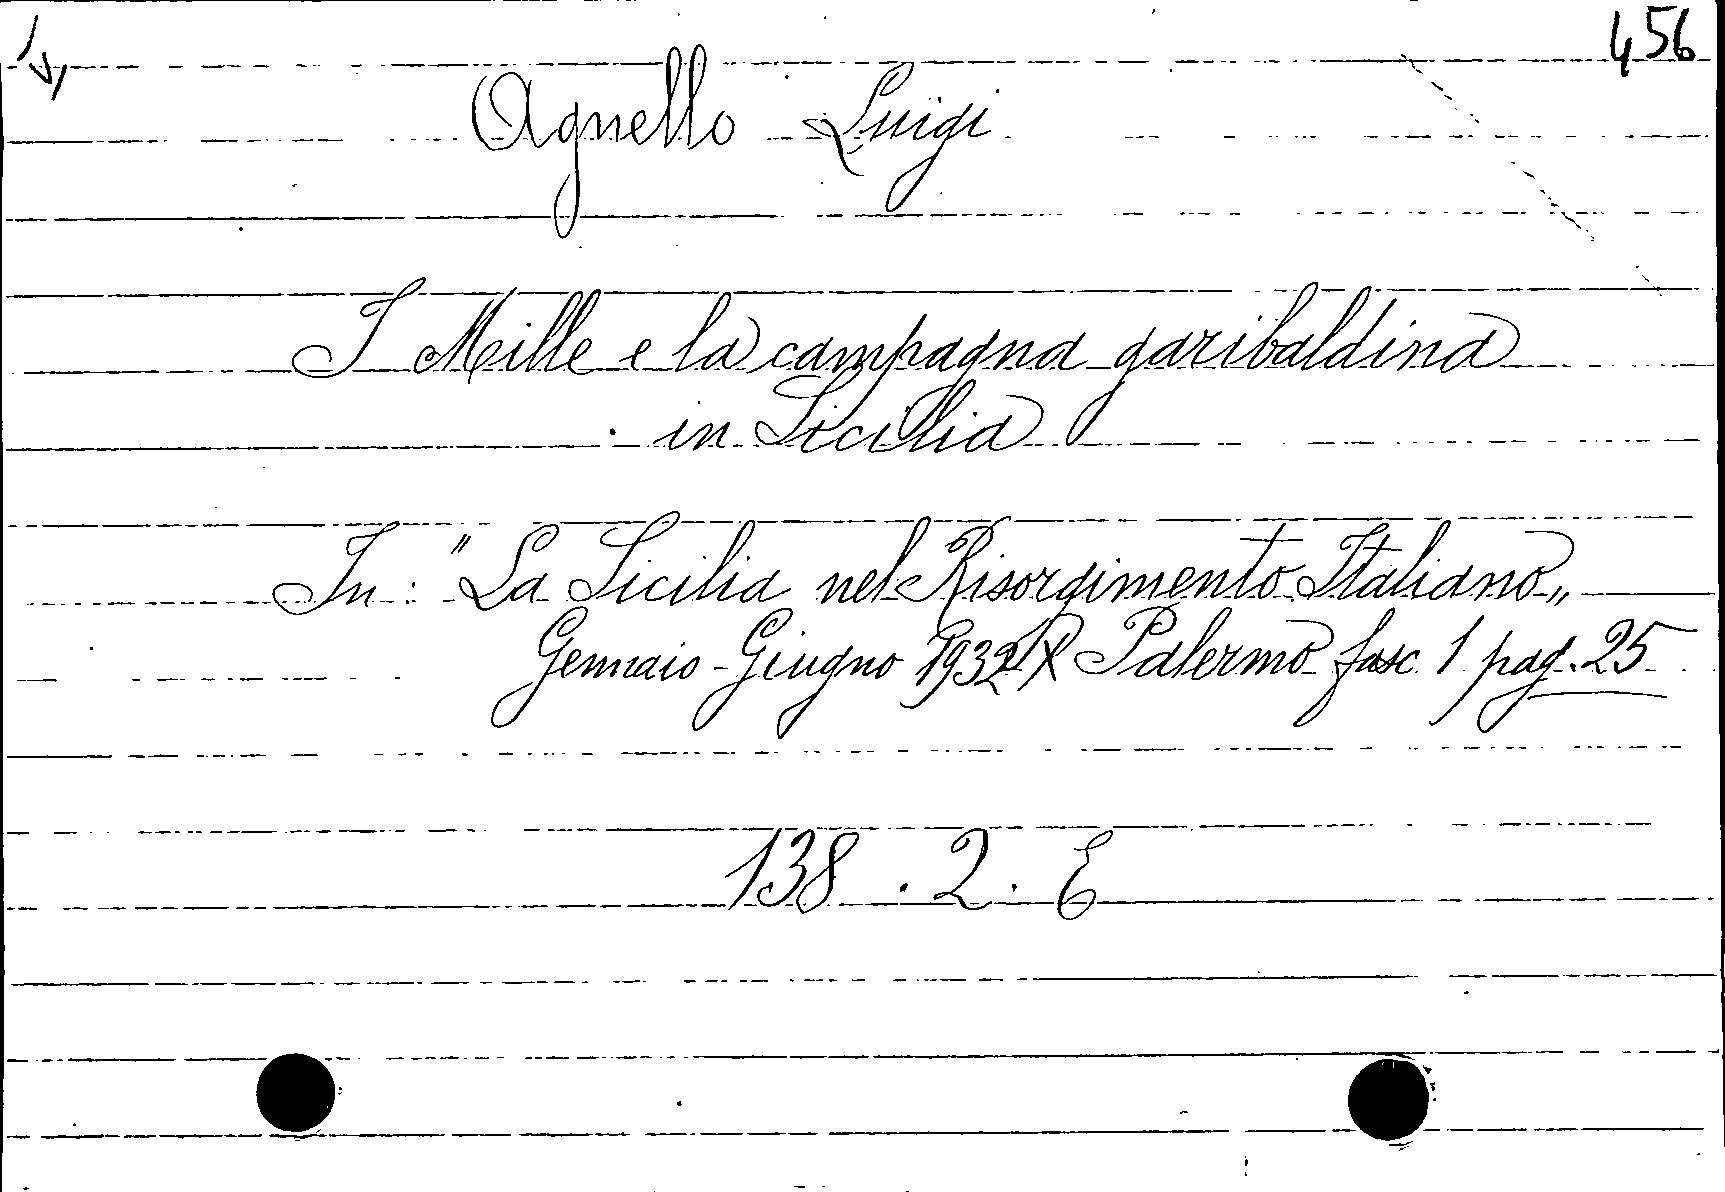 456
Agnello Luigi
I Mille e la campagna garibaldina
in Sicilia
In: "La Sicilia nel Risorgimento Italiano„
Gennaio-Giugno 1932 X Palermo fasc 1 pag. 25
138 . 2 . E